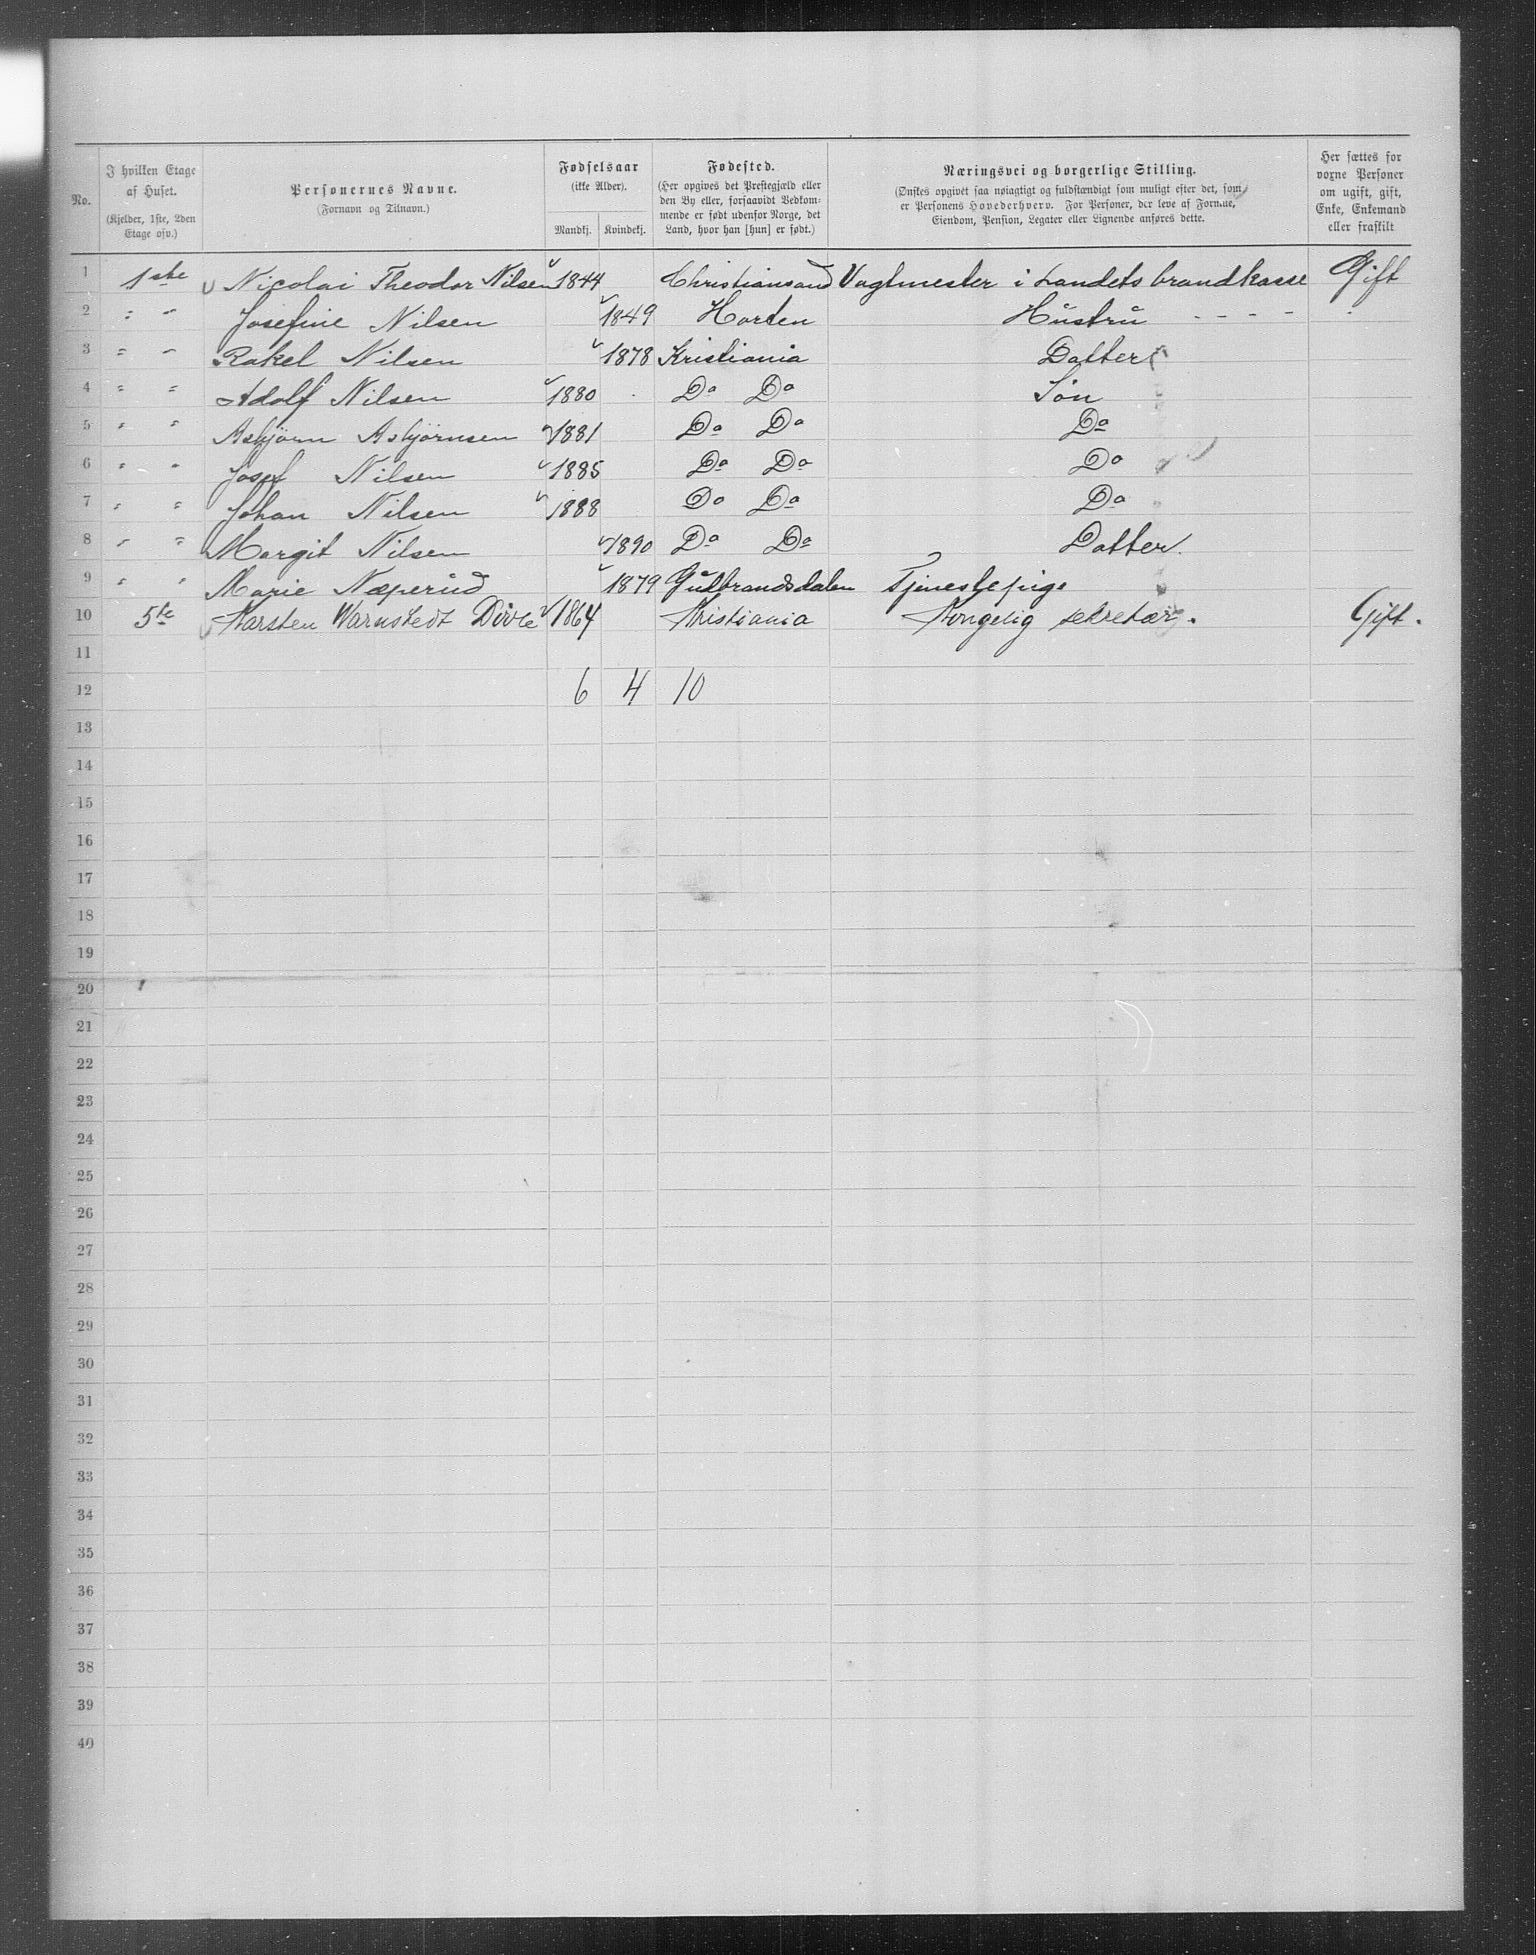 No. I hvilken Etage af Huset. (Kjelder, 1ste, 2den Etage osv.) Personernes Navne. (Fornavn og Tilnavn.) Fødselsaar (ikke Alder). Mandkj. Kvindekj. Fødested. (Her opgives det Præstegjæld eller den By eller, forsaavidt Vedkommende er født udenfor Norge, det Land, hvor han [hun] er født.) Næringsvei og borgerlige Stilling. (Ønskes opgivet saa nøiagtigt og fuldstændigt som muligt efter det, som er Personens Hovederhverv. For Personer, der leve af Formue, Eiendom, Pension, Legater eller Lignende anføres dette. Her sættes for voxne Personer om ugift, gift, Enke, Enkemand eller fraskilt
1 1ste Nicolai Theodor Nilsen 1844 Christiansand Vagtmester i Landets brandkasse Gift
2 " " Josefine Nilsen 1849 Horten Hustru - - - - -
3 " " Rakel Nilsen 1878 Kristiania Datter
4 " " Adolf Nilsen 1880 Do Do Søn
5 " " Asbjørn Asbjørnsen 1881 Do Do Do
6 " " Josef Nilsen 1885 Do Do Do
7 " " Johan Nilsen 1888 Do Do Do
8 " " Margit Nilsen 1890 Do Do Datter.
9 " " Marie Næperud 1879 Gudbrandsdalen Tjenestepige
10 5te Karsten Warnstedt 1864 Kristiania Kongelig sekretær. Gift.
11
12 6 4 10
13
14
15
16
17
18
19
20
21
22
23
24
25
26
27
28
29
30
31
32
33
34
35
36
37
38
39
40